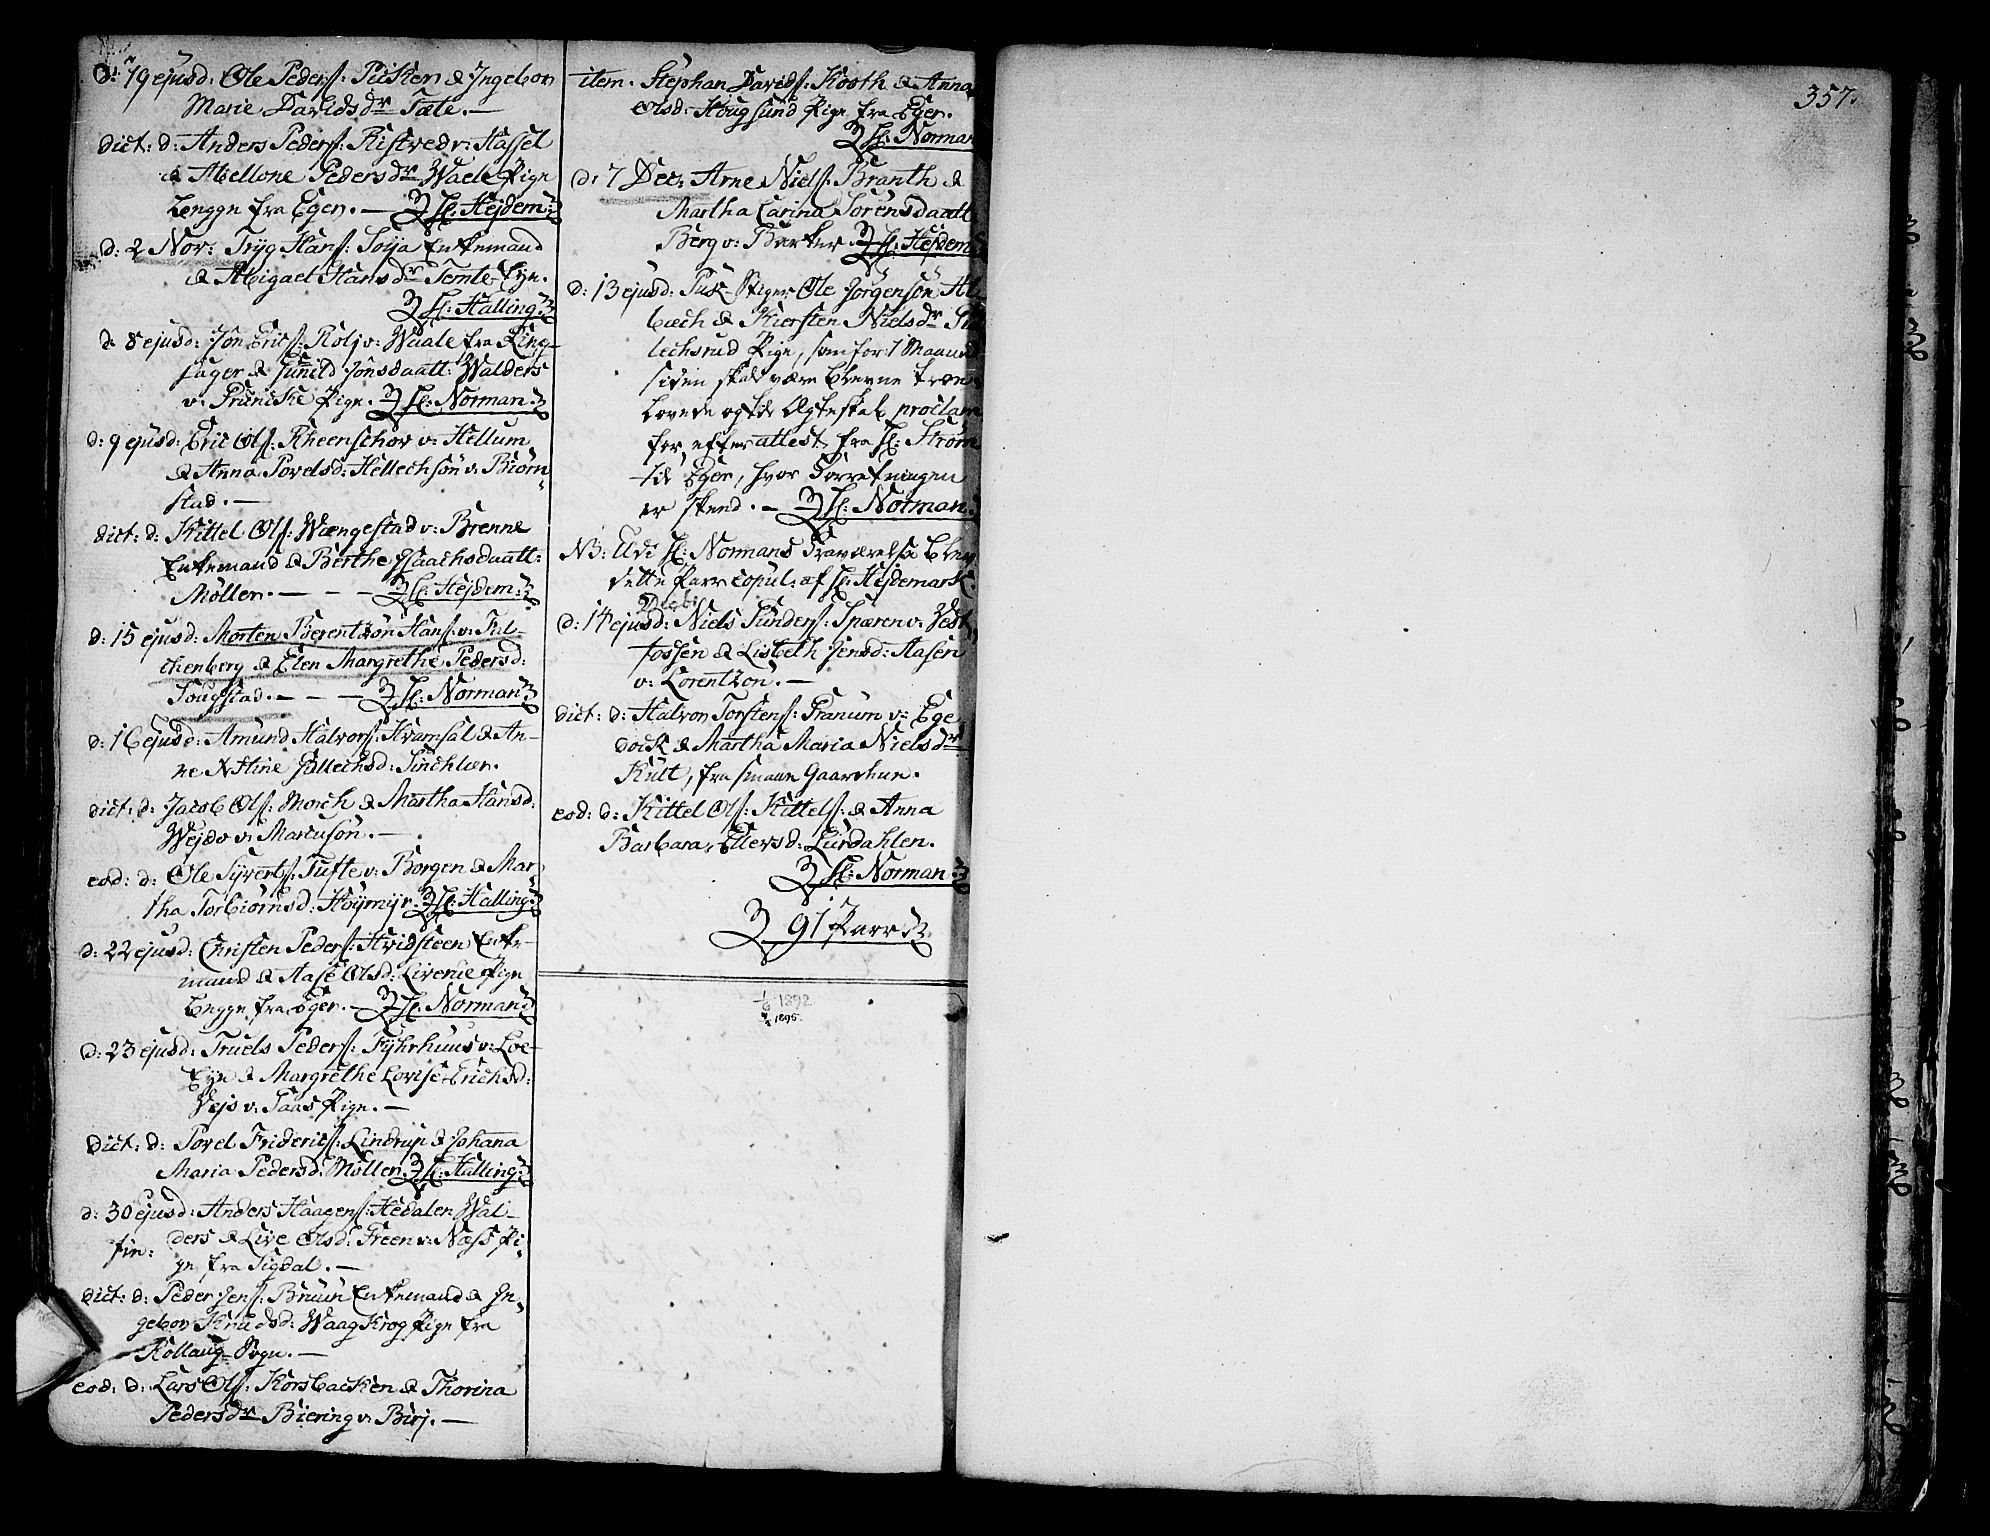 d: 19 ejusd: Ole Peders: Pusken & Ingebor
Marie Davidsdr Tale. —
dict: d: Anders Peders: Ristved v: Hassel
& Abellone Pedersdr Waele Pige
begge fra Eger. — Hr: Hejdem:
d: 2 Nov: Tryg Hans: Soya Enkemand
& Abigael Hansdr Temte Eyn.
Hr: Halling
d 8 ejusd: Jon Erics: Rolj v: Waale fra Ring-
sager & Gunild Jonsdaatt: Walders
v: Prunicke Pige. Hr: Norman
d: 9 ejusd: Eric Ols: Rheenschov v: Hellum
& Anna Povelsd: Hellechson v: Biorn-
stad. —
dict: d: Kittel Ols: Wængestad v: Brenne
Enkemand & Berthe Isaachsdaatt:
Møller. — — Hr: Hejdem:
d: 15 ejusd: Morten Berentzøn Hans: v: Ful-
chenberg & Elen Margrethe Pedersd:
Sougstad. — — Hr: Norman
d: 16 ejusd: Amund Halvors: Kvamsal & An-
ne Kstine Gullechsd: Sinchler.
dict: d: Jacob Ols: Morch & Martha Hansd:
Wejdv v: Marcuson. —
eod: d: Ole Syverts: Tufte v: Borgen & Mar-
tha Torbiørnsd: Høymyr. Hr: Halling
d: 22 ejusd: Christen Peders: Hvidsteen Enke-
mand & Aase Olsd: Livenie Pige
begge fra Eger. — Hr: Norman
d: 23 ejusd: Truels Peders: Fyhrhuus v: Loe-
Eyn & Margrethe Lovise Erichsd:
Vejs v: Saas Pige. —
dict: d: Povel Friderics: Lindrup & Johana
Maria Pedersd: Møller. Hr: Halling
d: 30 ejusd: Anders Haagens: Hedalen Wal-
fin: ders & Live Olsd: Freen v: Næss Pi-
ge fra Sigdal. —
dict: d: Peder Jens: Bruun Enkemand & In-
gebor Knudsd: Waag Krog Pige fra
Rollaug Sogn. —
eod: d: Lars Ols: Korsbacken & Thorina
Pedersdr Biering v: Birj. —
item. Stephan Davids: Kooth & Anna
Olsd: Hougsund Pige fra Eger.
Hr: Norman
d: 7 Dec: Arne Niels: Branth &
Martha Carina Sørensdaatt
Berg v: Barker Hr: Hejdem
d: 13 ejusd: Ole Jørgensøn
bæch & Kiersten Nielsdr
lechsrud Pige, som for 7 Maaned
siden skal være blevne troe-
lovede og til Ægteskab proclam
før, efter attest fra Hr: Strøm
til Eger, hvor Forretningen
er skeed. — Hr: Norman
NB: Udi Hr: Normans Fraværelse blev
dette Parr copul: af Hr: Hejdemark.
Decbr
d: 14 ejusd: Niels Gunders: Spæren v: Vest-
fossen & Lisbeth Jensd: Aasen
v: Lorentzon. —
dict: d: Halvor Torstens: Granum v: Ege
dock & Martha Maria Nielsdr
Kult, fra smaae Gaardene.
eod: d: Kittel Ols: Kittels: & Anna
Barbara Ellersd: Lurdahlen.
Hr: Norman
91 Parr
1/6 1892
1895.
357.